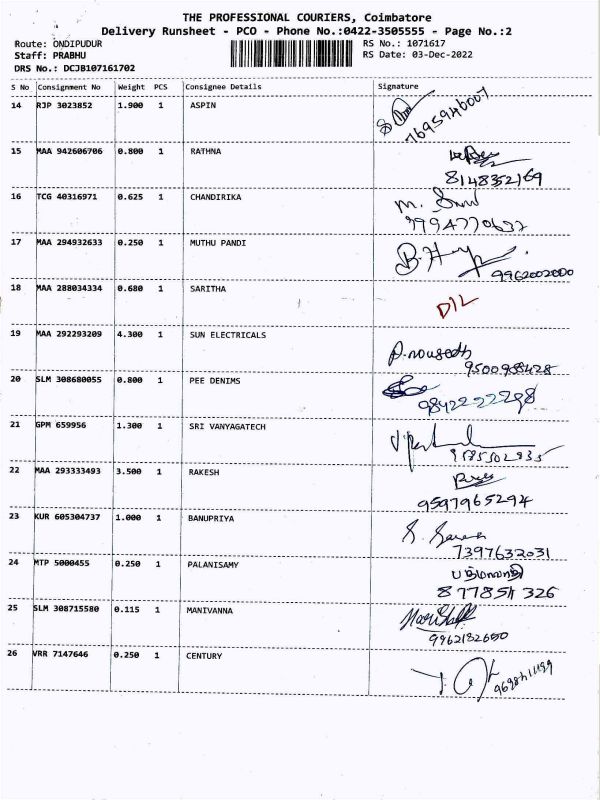 THE PROFESSIONAL COURIERS, Coimbatore
Delivery Runsheet - PCO - Phone No.:0422-3505555 - Page No.:2
Route: ONDIPUDUR RS No.: 1071617
Staff: PRABHU RS Date: 03-Dec-2022
DRS No.: DCJB107161702
S No Consignment No Weight PCS Consignee Details Signature
14 RJP 3023852 1.900 1 ASPIN 7695946007
15 MAA 942606706 0.800 1 RATHNA
8148352169
16 TCG 40316971 0.625 1 CHANDIRIKA M.
17 MAA 294932633 0.250 1 MUTHU PANDI
9962002000
18 MAA 288034334 0.680 1 SARITHA D/L
19 MAA 292293209 4.300 1 SUN ELECTRICALS
20 SLM 308680055 0.800 1 PEE DENIMS
21 GPM 659956 1.300 1 SRI VANYAGATECH
22 MAA 293333493 3.500 1 RAKESH
9597965294
23 KUR 605304737 1.000 1 BANUPRIYA
7397632031
24 MTP 5000455 0.250 1 PALANISAMY
25 SLM 308715580 0.115 1 MANIVANNA
9962182650
26 VRR 7147646 0.250 1 CENTURY